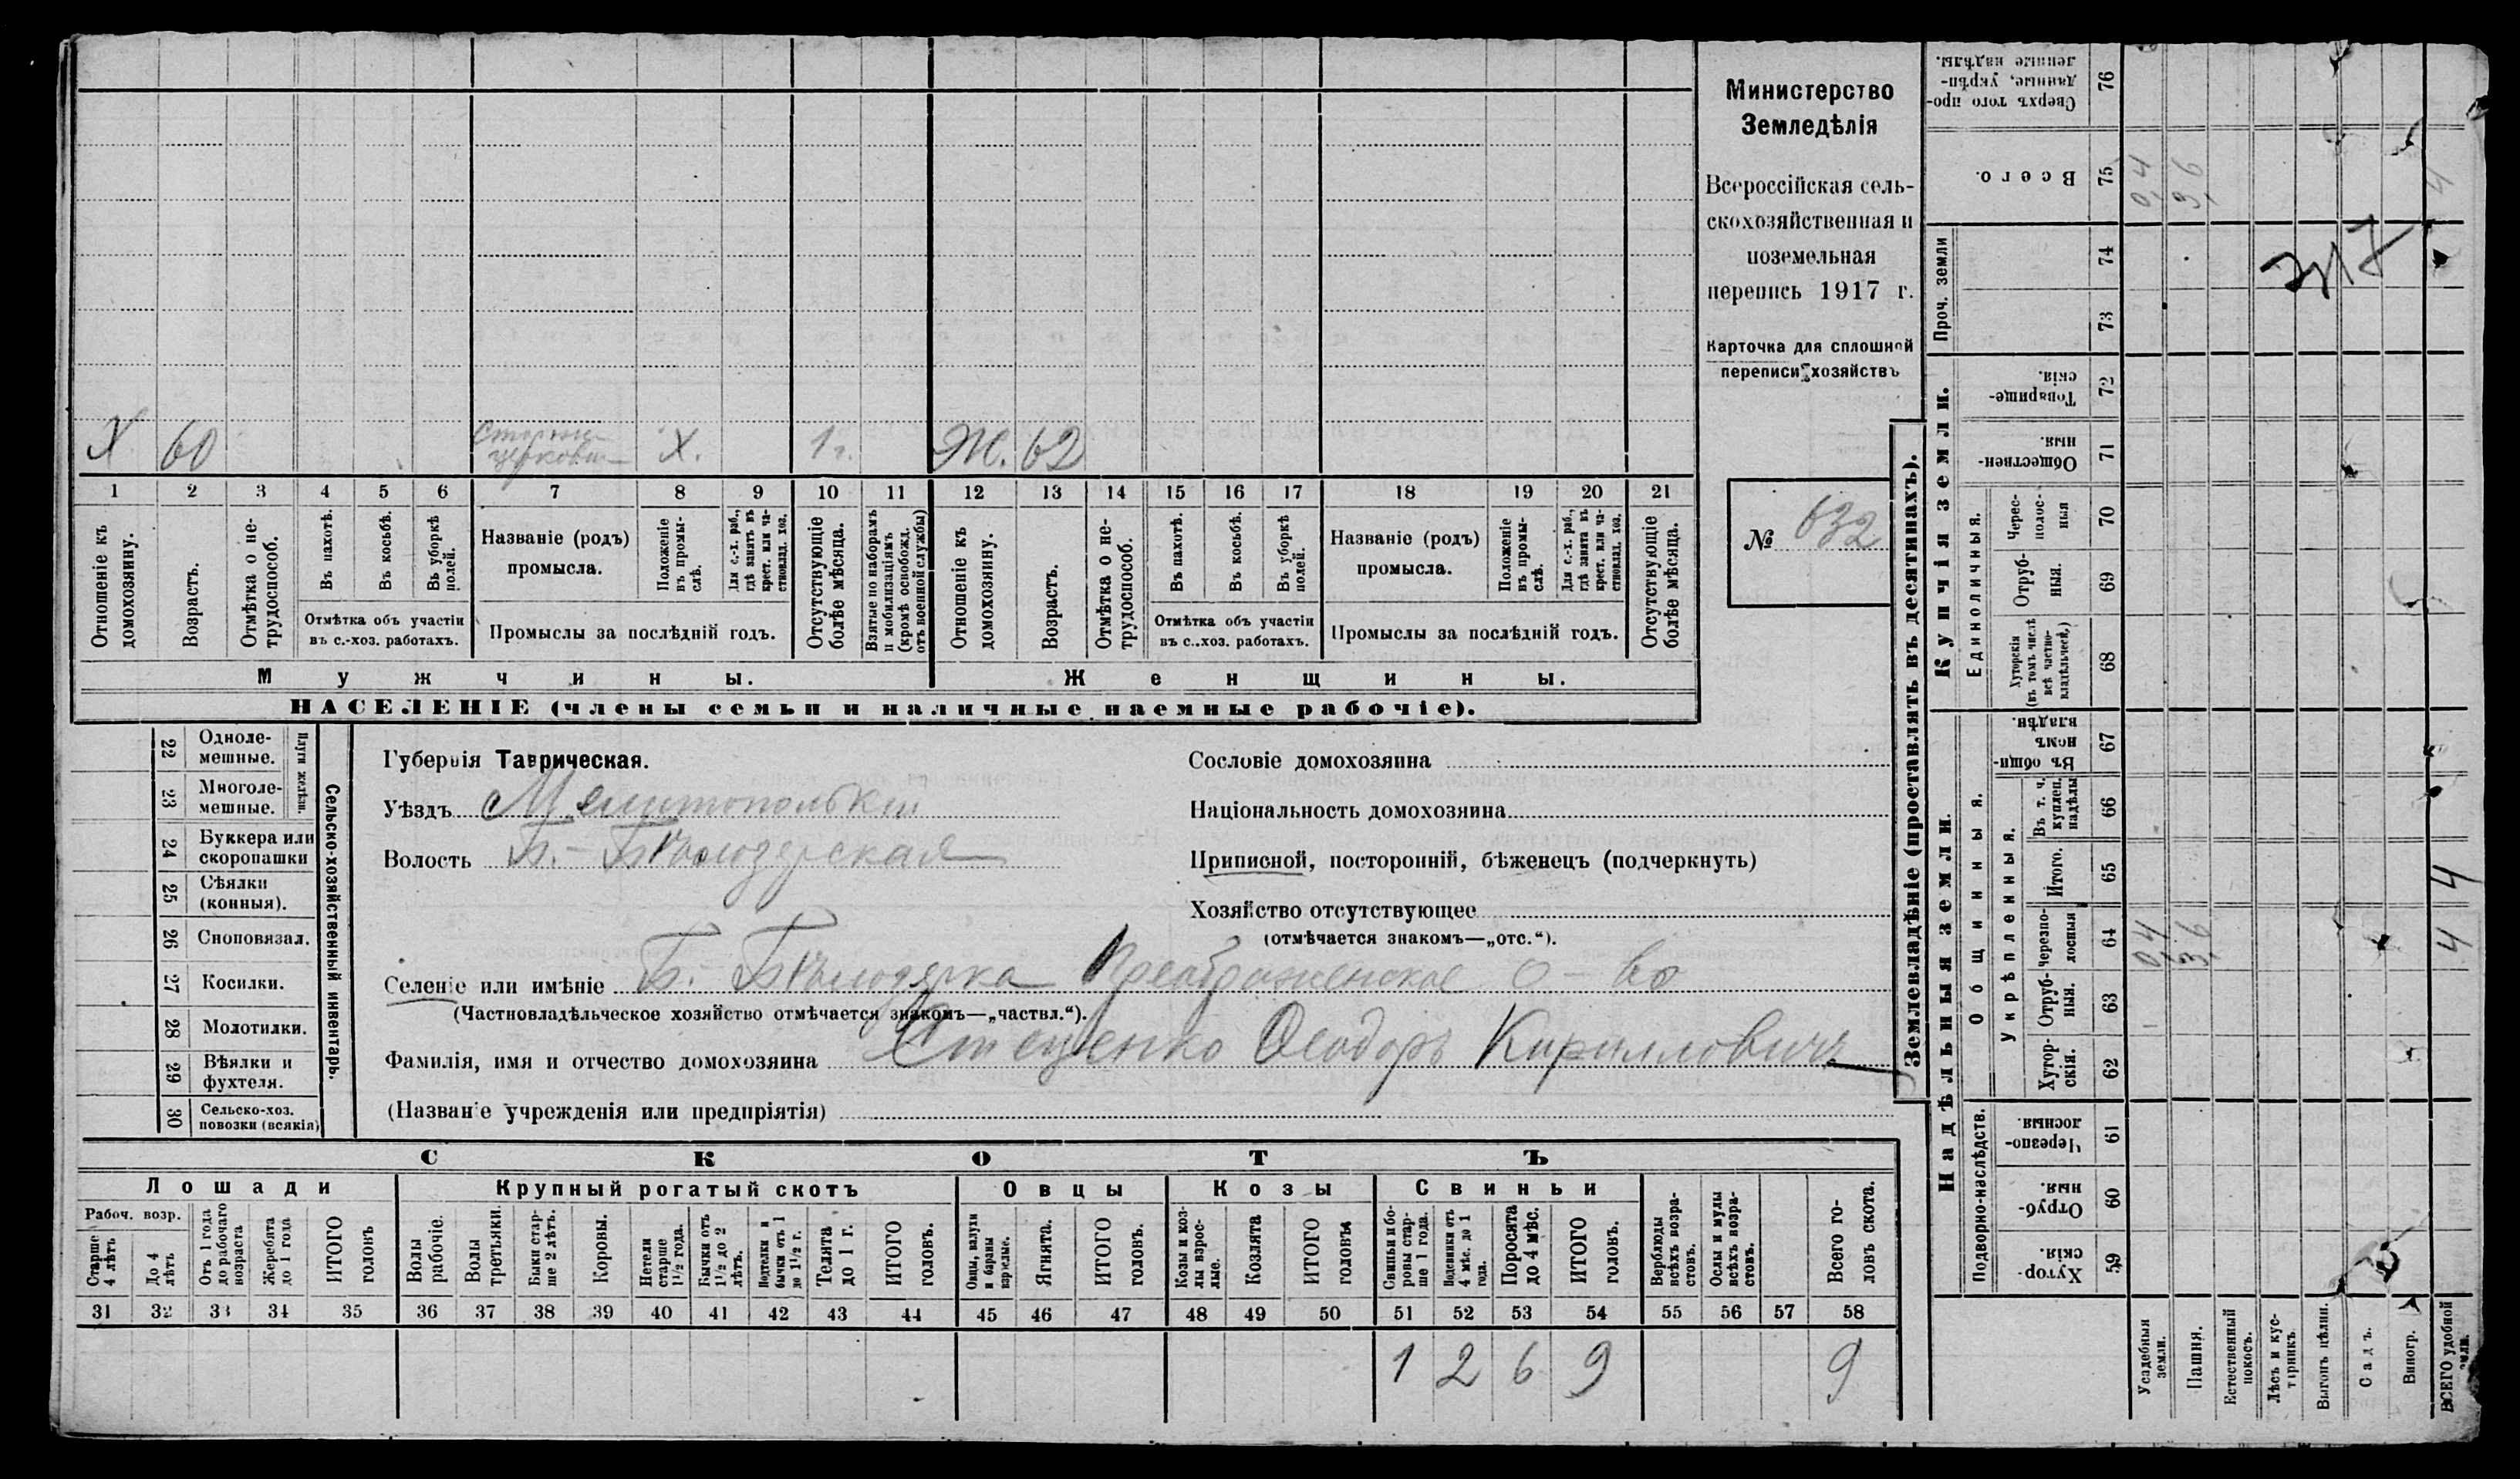 Министерство
Земледѣлія
Всероссійская сель-
скохозяйственная и
поземельная
перепись 1917 г.
Карточка для сплошной
переписи хозяйствъ
№ 632
Х 60 церковн Х. 1 г. Ж. 62
1 2 3 4 5 6 7 8 9 10 11 12 13 14 15 16 17 18 19 20 21
Отношеніе къ домохозяину.
Возрастъ.
Отмѣтка о не-трудоспособ.
Въ пахотѣ.
Въ косьбѣ.
Въ уборкѣ полей.
Отмѣтка объ участіи
въ с.-хоз. работахъ.
Названіе (родъ)
промысла.
Положеніе въ промы-слѣ.
Для с.-х. раб., гдѣ занятъ въ крест. или ча-стновлад. хоз.
Промыслы за послѣдній годъ.
Отсутствующіе болѣе мѣсяца.
Взятые по наборамъ и мобилизаціямъ (кромѣ освобожд. отъ военной службы)
Отношеніе къ домохозяину.
Возрастъ.
Отмѣтка о не-трудоспособ.
Въ пахотѣ.
Въ косьбѣ.
Въ уборкѣ полей.
Отмѣтка объ участіи
въ с..хоз. работахъ.
Названіе (родъ)
промысла.
Положеніе въ промы-слѣ.
Для с.-х. раб., гдѣ занята въ крест. или ча-стновлад. хоз.
Промыслы за послѣдній годъ.
Отсутствующіе болѣе мѣсяца.
Мужчины.
Женщины.
НАСЕЛЕНІЕ (члены семьи и наличные наемные рабочіе).
22 Одноле-мешные.
23 Многоле-мешные.
Плуги желѣзн.
24 Буккера или скоропашки
25 Сѣялки (конныя).
26 Сноповязал.
27 Косилки.
28 Молотилки.
29 Вѣялки и фухтеля.
30 Сельско-хоз. повозки (всякія)
Сельско-хозяйственный инвентарь.
Губернія Таврическая.
Уѣздъ Мелитопольскій
Волость Б.-Бѣлозерская
Сословіе домохозяина
Національность домохозяина
Приписной, посторонній, бѣженецъ (подчеркнуть)
Хозяйство отсутствующее
(отмѣчается знакомъ—„отс.“).
Селеніе или имѣніе Б. Бѣлозерка Преображенское о-во
(Частновладѣльческое хозяйство отмѣчается знакомъ—„частвл.“).
Фамилія, имя и отчество домохозяина Стеценко Ѳеодоръ Кирилловичъ
(Названіе учрежденія или предпріятія)
СКОТЪ
Лошади
Крупный рогатый скотъ
Овцы
Козы
Свиньи
Рабоч. возр.
Старше 4 лѣтъ
До 4 лѣтъ
Отъ 1 года до рабочаго возраста
Жеребята до 1 года
ИТОГО головъ
Волы рабочіе.
Волы третьяки.
Быки стар-ше 2 лѣтъ.
Коровы.
Нетели старше 1½ года.
Бычки отъ 1½ до 2 лѣтъ.
Подтелки и бычки отъ 1 до 1½ г.
Телята до 1 г.
ИТОГО головъ.
Овцы, валухи и бараны взрослые.
Ягнята.
ИТОГО головъ.
Козы и коз-лы взрос-лые.
Козлята
ИТОГО головъ
Свиньи и бо-ровы стар-ше 1 года.
Подсвинки отъ 4 мѣс. до 1 года.
Поросята до 4 мѣс.
ИТОГО головъ.
Верблюды всѣхъ возра-стовъ.
Ослы и мулы всѣхъ возра-стовъ.
Всего го-ловъ скота.
31 32 33 34 35 36 37 38 39 40 41 42 43 44 45 46 47 48 49 50 51 52 53 54 55 56 57 58
1 2 6 9 9
Землевладѣніе (проставлять въ десятинахъ).
Надѣльныя земли.
Купчія земли.
Проч. земли
Подворно-наслѣдств.
Общинныя.
Укрѣпленныя.
Единоличныя.
Сверхъ того про-данные, укрѣп-ленные надѣлы. 76
Всего. 75
74
73
Товарище-скія. 72
Обществен-ныя. 71
Черес-полос-ныя 70
Отруб-ныя. 69
Хуторскія (въ томъ числѣ всѣ частно-владѣльческ.) 68
Въ общи-номъ владѣн. 67
Въ т. ч. куплен. надѣлы 66
Итого. 65
Черезпо-лосныя 64
Отруб-ныя. 63
Хутор-скія. 62
Черезпо-лосныя. 61
Отруб-ныя. 60
Хутор-скія. 59
0,4 3,6 4
0,4 3,6 4 4
Усадебныя земли.
Пашня.
Естественный покосъ.
Лѣсъ и кус-тарникъ.
Выгонъ цѣлин.
Садъ.
Виногр.
ВСЕГО удобной земли.